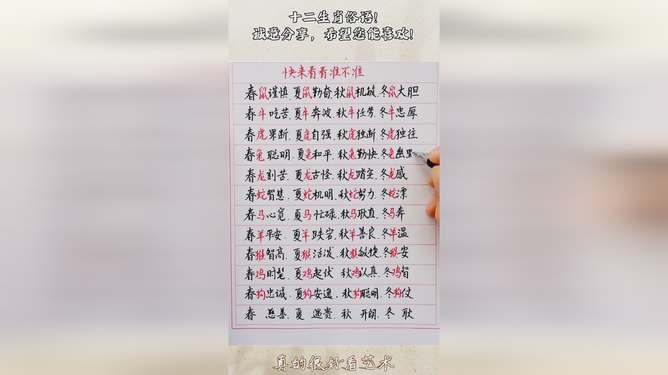 十二生肖俗语!
诚意分享，希望您能喜欢!
快来看看准不准
春鼠谨慎.夏鼠勤奋.秋鼠机敏.冬鼠大胆
春牛吃苦.夏牛奔波.秋牛任劳.冬牛忠厚
春虎果断.夏虎自强.秋虎独断.冬虎独往
春兔聪明.夏兔和平.秋兔勤快.冬兔幽
春龙刻苦.夏龙古怪.秋龙踏实.冬龙威
春蛇智慧.夏蛇机明.秋蛇努力.冬蛇漂
春马心宽.夏马忙碌.秋马耿直.冬马奔
春羊平安.夏羊缺宕.秋羊善良.冬羊温
春猴智高.夏猴活泼.秋猴敏捷.冬猴安
春鸡时髦.夏鸡起伏 秋鸡认真.冬鸡智
春狗忠诚.夏狗安逸.秋狗聪明.冬狗仗
春 愚善.夏 遇贵 秋 开朗.冬 耿
真的很好看艺术